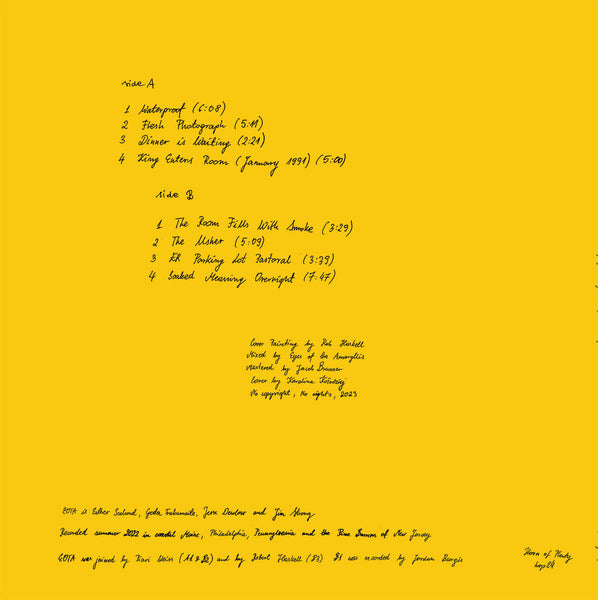 side A
1 Waterproof (6:08)
2 Flesh Photograph (5:41)
3 Dinner is Waiting (2:21)
4 King Enters Room (January 1991) (5:00)
side B
1 The Room Fills With Smoke (3:29)
2 The Usher (5:09)
3 ER Parking Lot Pastoral (3:39)
4 Soaked Meaning Overnight (7:47)
Cover Painting by Rob
Mixed by Eyes of the Amaryllis
Mastered by Jacob
Cover by Karolina
No copyright, No rights, 2023
EOTA is Esther Scanlund, Goda Trakumaite, Jesse Dewlow and Jim Strong
Recorded summer 2022 in coastal Maine, Philadelphia, Pennsylvania and the Pine Barrens of New Jersey
EOTA was joined by Kari and by Robert Haskell (B3) was recorded by Jordan Burgis
Horn of Plenty
hop24